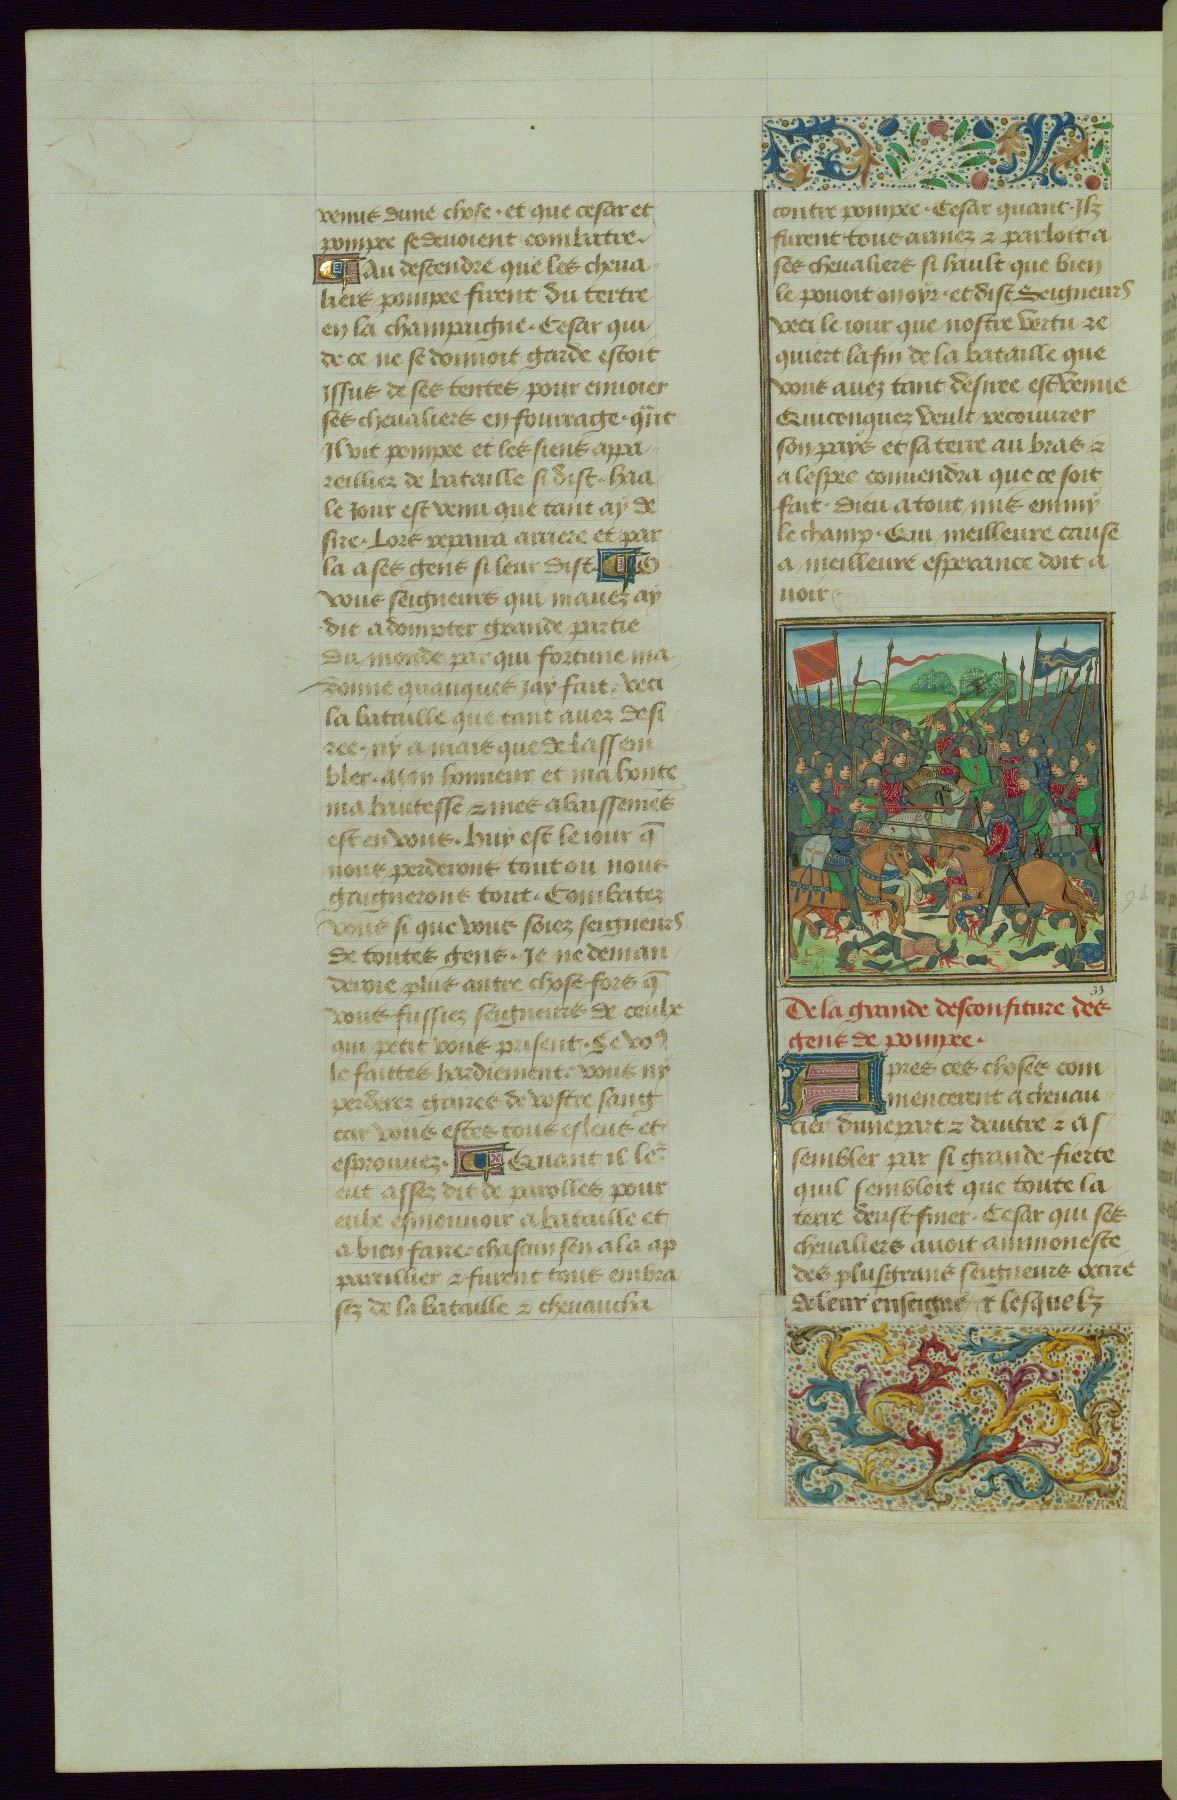 venus dune chose · et que cesar et
pompee se deuoient combatre ·
Au descendre que les cheua
liers pompee firent du tertre
en la champaigne · Cesar qui
de ce ne se donnoit garde estoit
Issus de ses tentes pour enuoier
ses cheualiers en fourrage · qñt
Il vit pompee et les siens appa
reilliez de bataille si dist · haa
le Jour est venu que tant ay de
sire · Lors repaira arriere et par
la a ses gens si leur dist · O
vous seigneurs qui mauez ay
die a dompter grande partie
du monde par qui fortune ma
donne quanques Jay fait · veci
la bataille que tant auez desi
ree · ny a mais que de lassem
bler · a mon honneur et ma honte
ma hautesse ⁊ mes abaissemēs
est en vous · Huy est le iour q̄
nous perderons tout ou nous
gaignerons tout · Combatez
vous si que vous soiez seigneurs
de toutes gens · Je ne deman
deroie plus autre chose fors q̄
vous fussiez seigneurs de ceulx
qui petit vous prisent · Se voꝰ
le faittes hardiement · vous ny
perderez gaires de vostre sang
car vous estes tous esleus et
esprouuez · Quant il leᷣ
eut assez dit de parolles pour
eulx esmouuoir a bataille et
a bien faire · chascun sen ala ap
pareillier ⁊ furent tous embra
sez de la bataille ⁊ cheuaucha
contre pompee · Cesar quant Ilz
furent tous armez ⁊ parloit a
ses cheualiers si hault que bien
le pouoit on oÿr · et dist Seigneurs
veci le iour que nostre vertu re
quiert la fin de la bataille que
vous auez tant desiree est venue
Quiconquez veult recouurer
son pays et sa terre au bras ⁊
a lespee conuendra que ce soit
fait · Dieu a tout mis enmy
le champ · Qui meilleure cause
a meilleure esperance doit a
uoir
33
De la grande desconfiture des
gens de pompee ·
Apres ces choses com
mencerent a cheuau
cier dune part ⁊ dautre ⁊ as
sembler par si grande fierte
quil sembloit que toute la
terre deust finer · Cesar qui ses
cheualiers auoit ammoneste
des plus grans seigneurs occire
de leur enseigne ⁊ lesquelz